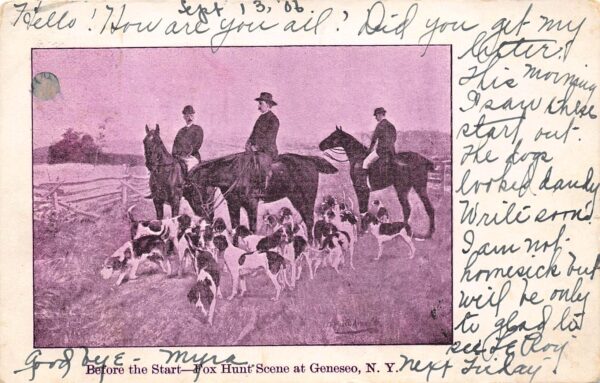 Sept 13, 06
Hello! How are you ail? Did you get my
letter?
This morning
I saw these
start out.
The dogs
looked dandy
Write soon.
I am not
homesick but
will be only
to glad to
see Roy
Next Friday.
Good bye - Myra
Before the Start—Fox Hunt Scene at Geneseo, N. Y.